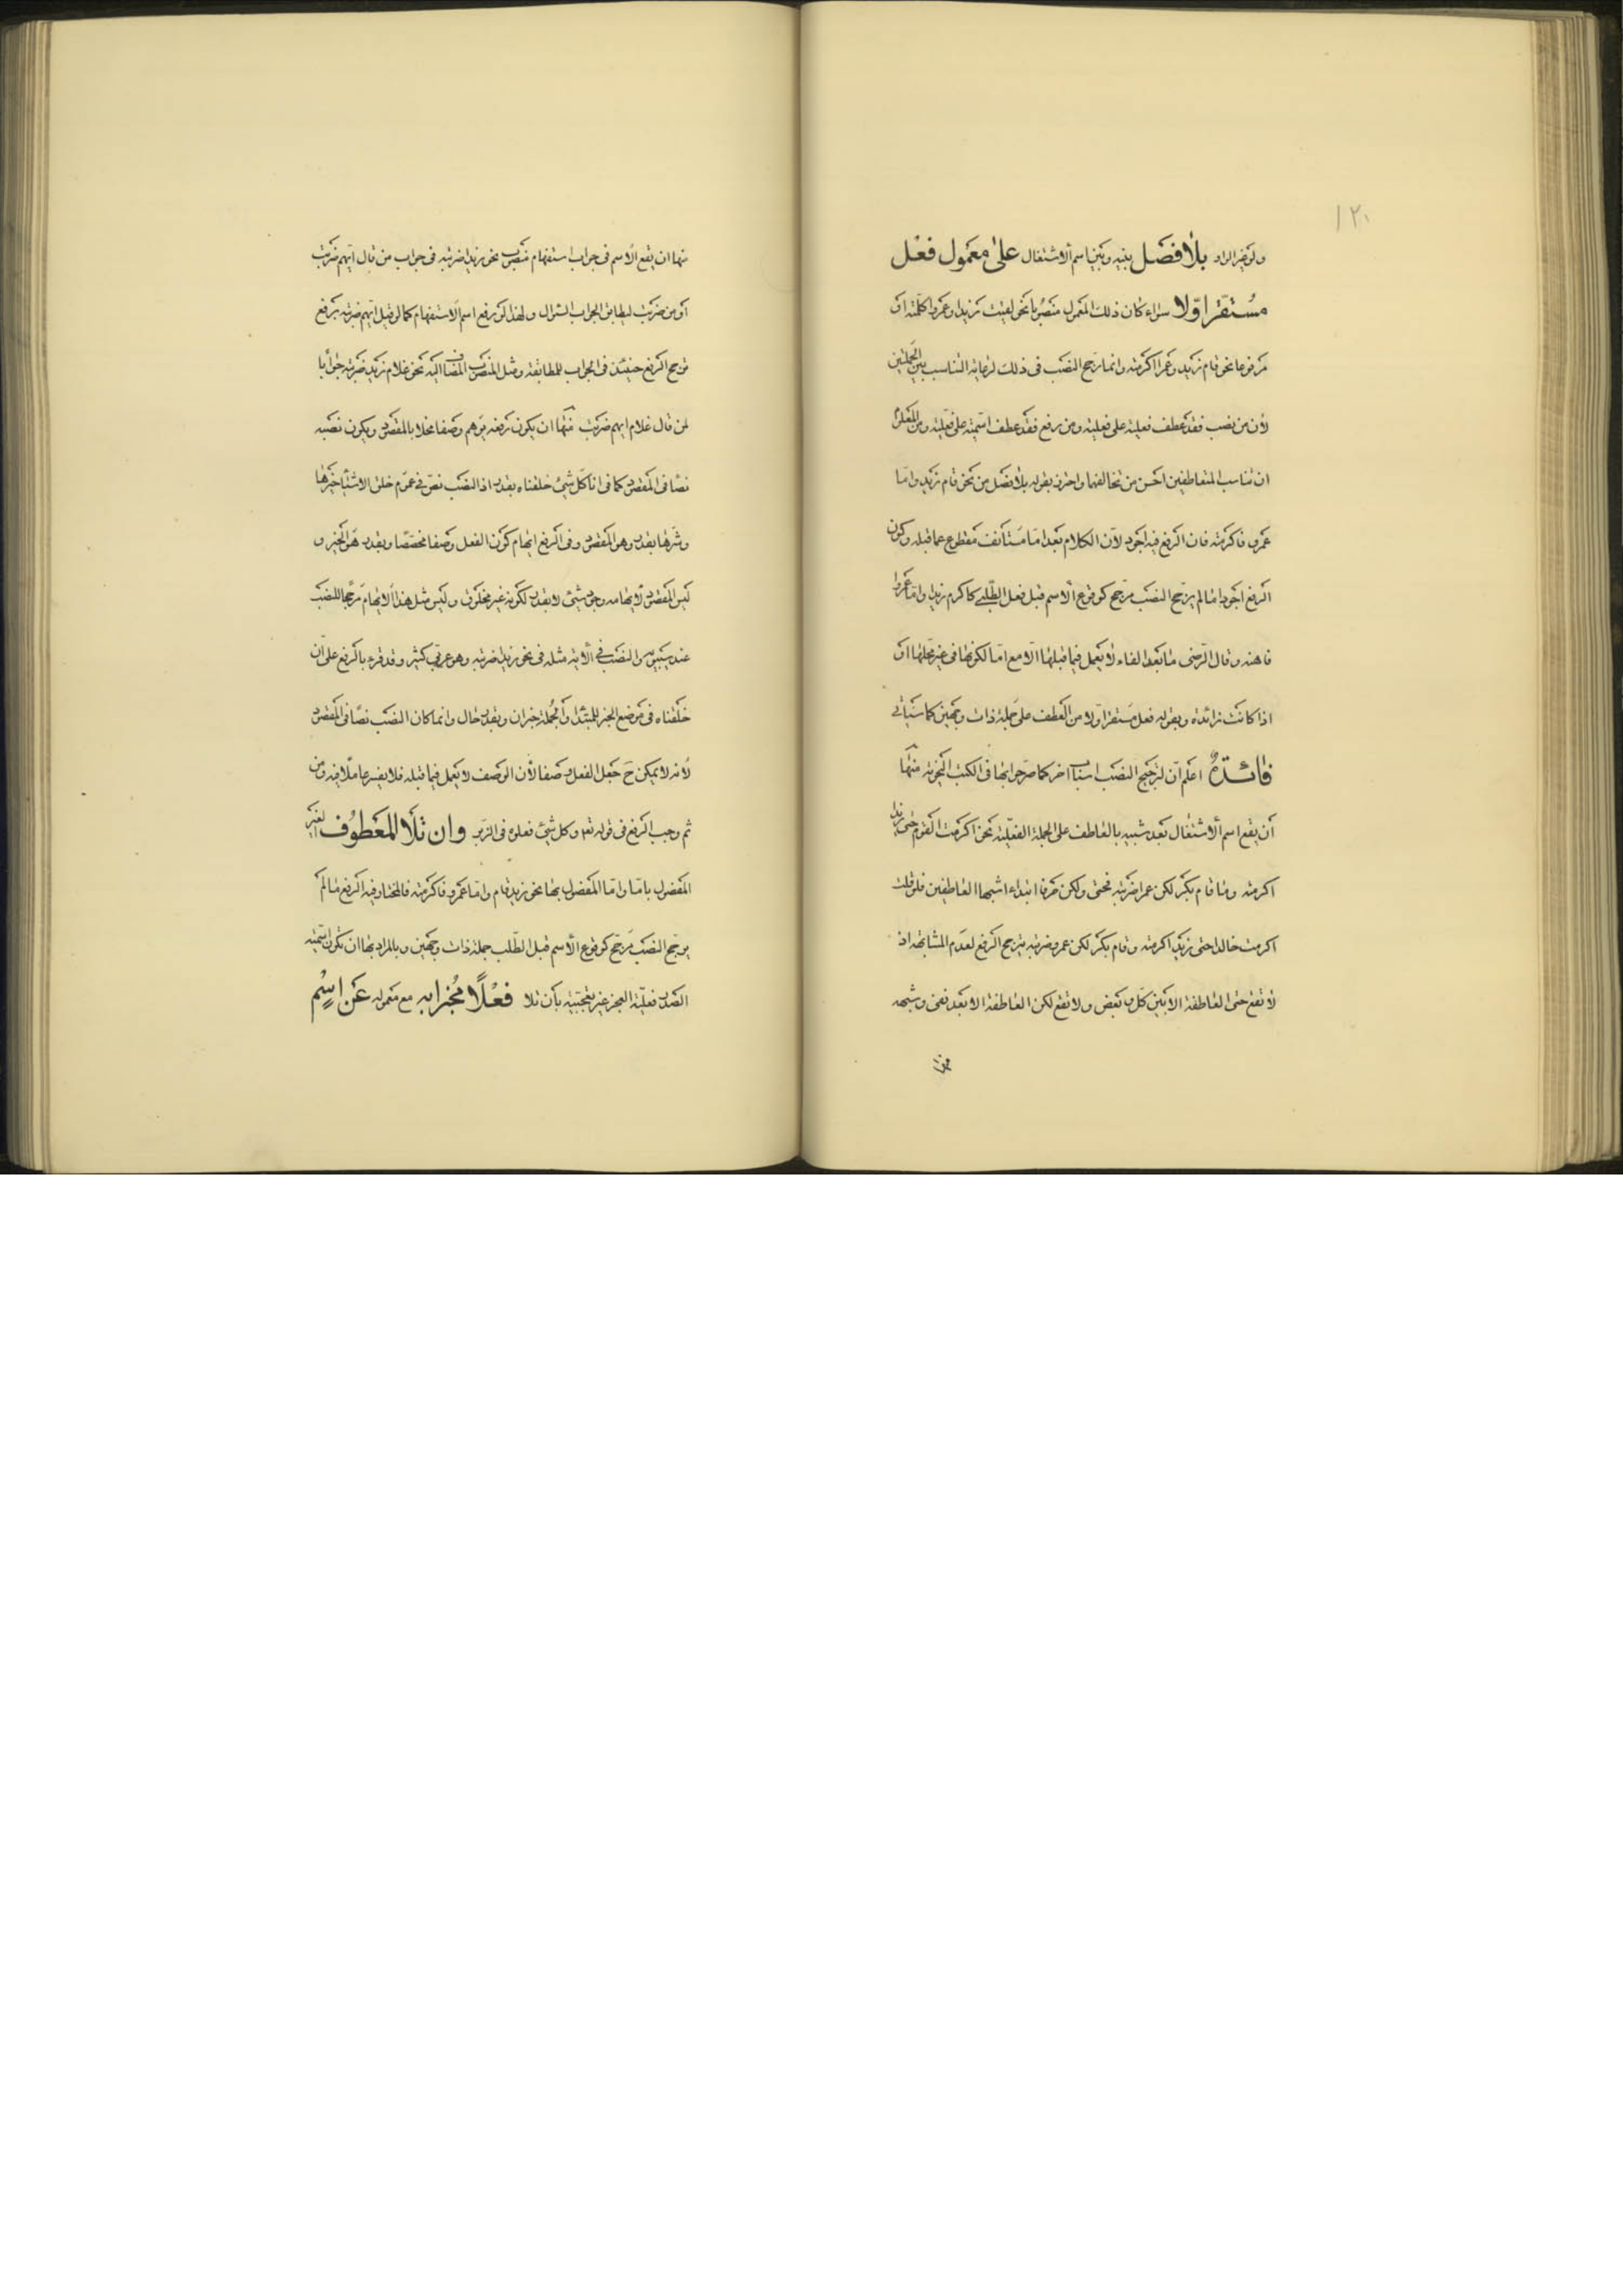 ١٢٠
ولو غير الواو بلا فصل بينه وبين اسم الاشتغال على معمول فعل
مستقر اولا سواء كان ذلك المعمول منصوبا نحو لقيت زيدا وعمروا كلمته او
مرفوعا نحو قام زيد وعمرا اكرمته وانما رجح النصب فى ذلك لرعاية التناسب بين الجملتين
لأن من نصب فقد عطف فعلية على فعلية ومن رفع فقد عطف اسمية على فعلية ومن المعلوم
ان تناسب المتعاطفين احسن من تخالفهما واحترز بقوله بلا فصل من نحو قام زيد واما
عمرو فاكرمته فان الرفع فيه اجود لأن الكلام بعد اما مستأنف مقطوع عما قبله وكون
الرفع اجود اما لم يرجح النصب مرجح كوقوع الاسم قبل فعل الطلب كاكرم زيدا واما عمروا
فاهنه وقال الرضى ما بعد الفاء لا يعمل فيما قبلها الا مع اما لكونها فى غير محلها او
اذا كانت زائدة وبقوله فعل مستقر اولا من العطف على جملة ذات وجهين كما سيأتى
فائدة اعلم ان لترجيح النصب اسبابا اخر كما صرحوا بها فى الكتب النحوية منها
أن يقع اسم الاشتغال بعد شبيه بالعاطف على الجملة الفعلية نحو اكرمت القوم حتى زيدا
اكرمته وما قام بكر لكن عمرا ضربته فحتى ولكن حرفا ابتداء اشبها العاطفين فلو قلت
اكرمت خالدا حتى زيد اكرمته وقام بكر لكن عمرو ضربته يترجح الرفع لعدم المشابهة اذ
لا تقع حتى العاطفة الا بين كل وبعض ولا تقع لكن العاطفة الا بعد نفى وشبهه
منها ان يقع الاسم فى جواب استفهام منصوب نحو زيدا ضربته فى جواب من قال ايهم ضربت
او من ضربت ليطابق الجواب السؤال ولهذا لو رفع اسم الاستفهام كما لو قيل ايهم ضربته برفع
ترجح الرفع حينئذ فى الجواب للمطابقة ومثل المنصوب المضاف اليه نحو غلام زيد ضربته جوابا
لمن قال غلام ايهم ضربت منها ان يكون رفعه يوهم وصفا مخلا بالمقصود ويكون نصبه
نصا فى المقصود كما فى انا كل شئ خلقناه بقدر اذ النصب نص فى عموم خلق الاشياء خيرها
وشرها بقدر وهو المقصود وفى الرفع ايهام كون الفعل وصفا مخصصا وبقدر هو الخبر و
ليس المقصود لايهامه وجود شئ لا بقدر لكونه غير مخلوق وليس مثل هذا الايهام مرجحا للنصب
عند سيبويه والنصب فى الاية مثله فى نحو زيدا ضربته وهو عربى كثير وقد قرء بالرفع على ان
خلقناه فى موضع الخبر للمبتدا والجملة خبر ان وبقدر حال وانما كان النصب نصا فى المقصود
لأنه لا يمكن ح جعل الفعل وصفا لأن الوصف لا يعمل فيما قبله فلا يفسر عاملا فيه ومن
ثم وجب الرفع فى قوله تع وكل شئ فعلوه فى الزبر وان تلا المعطوف لغير
المفصول باما واما المفصول بها نحو زيد قام واما عمرو فاكرمته فالمختار فيه الرفع ما لم
يرجح النصب مرجح كوقوع الاسم قبل الطلب جملة ذات وجهين والمراد بها ان تكون اسمية
الصدر فعلية العجز غير تعجبية بأن تلا فعلا مخبرا به مع معموله عن اسم